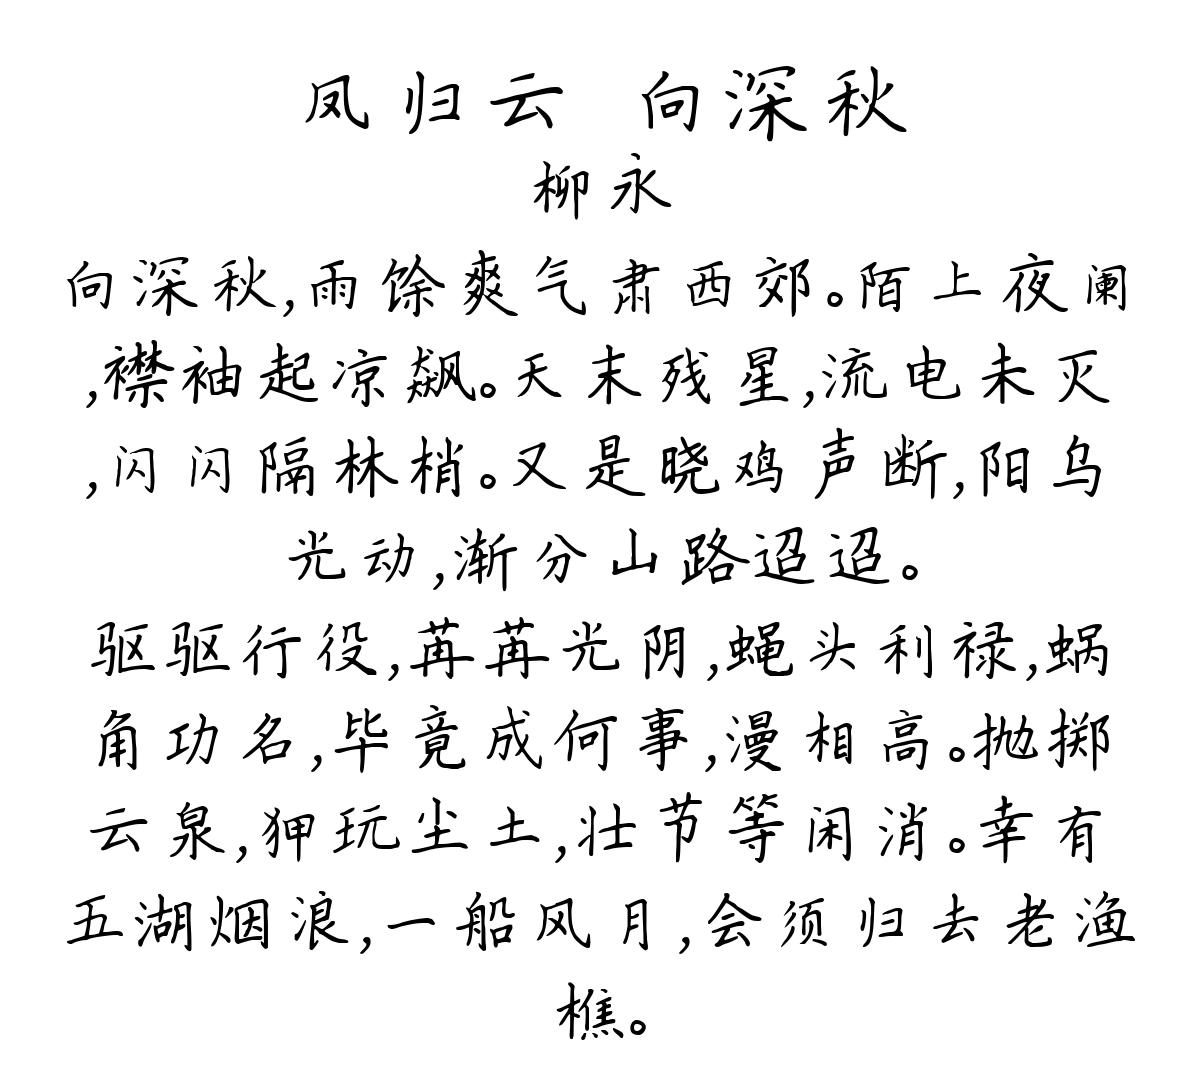 凤归云 向深秋
柳永
向深秋,雨馀爽气肃西郊。陌上夜阑
,襟袖起凉飙。天末残星,流电未灭
,闪闪隔林梢。又是晓鸡声断,阳乌
光动,渐分山路迢迢。
驱驱行役,苒苒光阴,蝇头利禄,蜗
角功名,毕竟成何事,漫相高。抛掷
云泉,狎玩尘土,壮节等闲消。幸有
五湖烟浪,一船风月,会须归去老渔
樵。